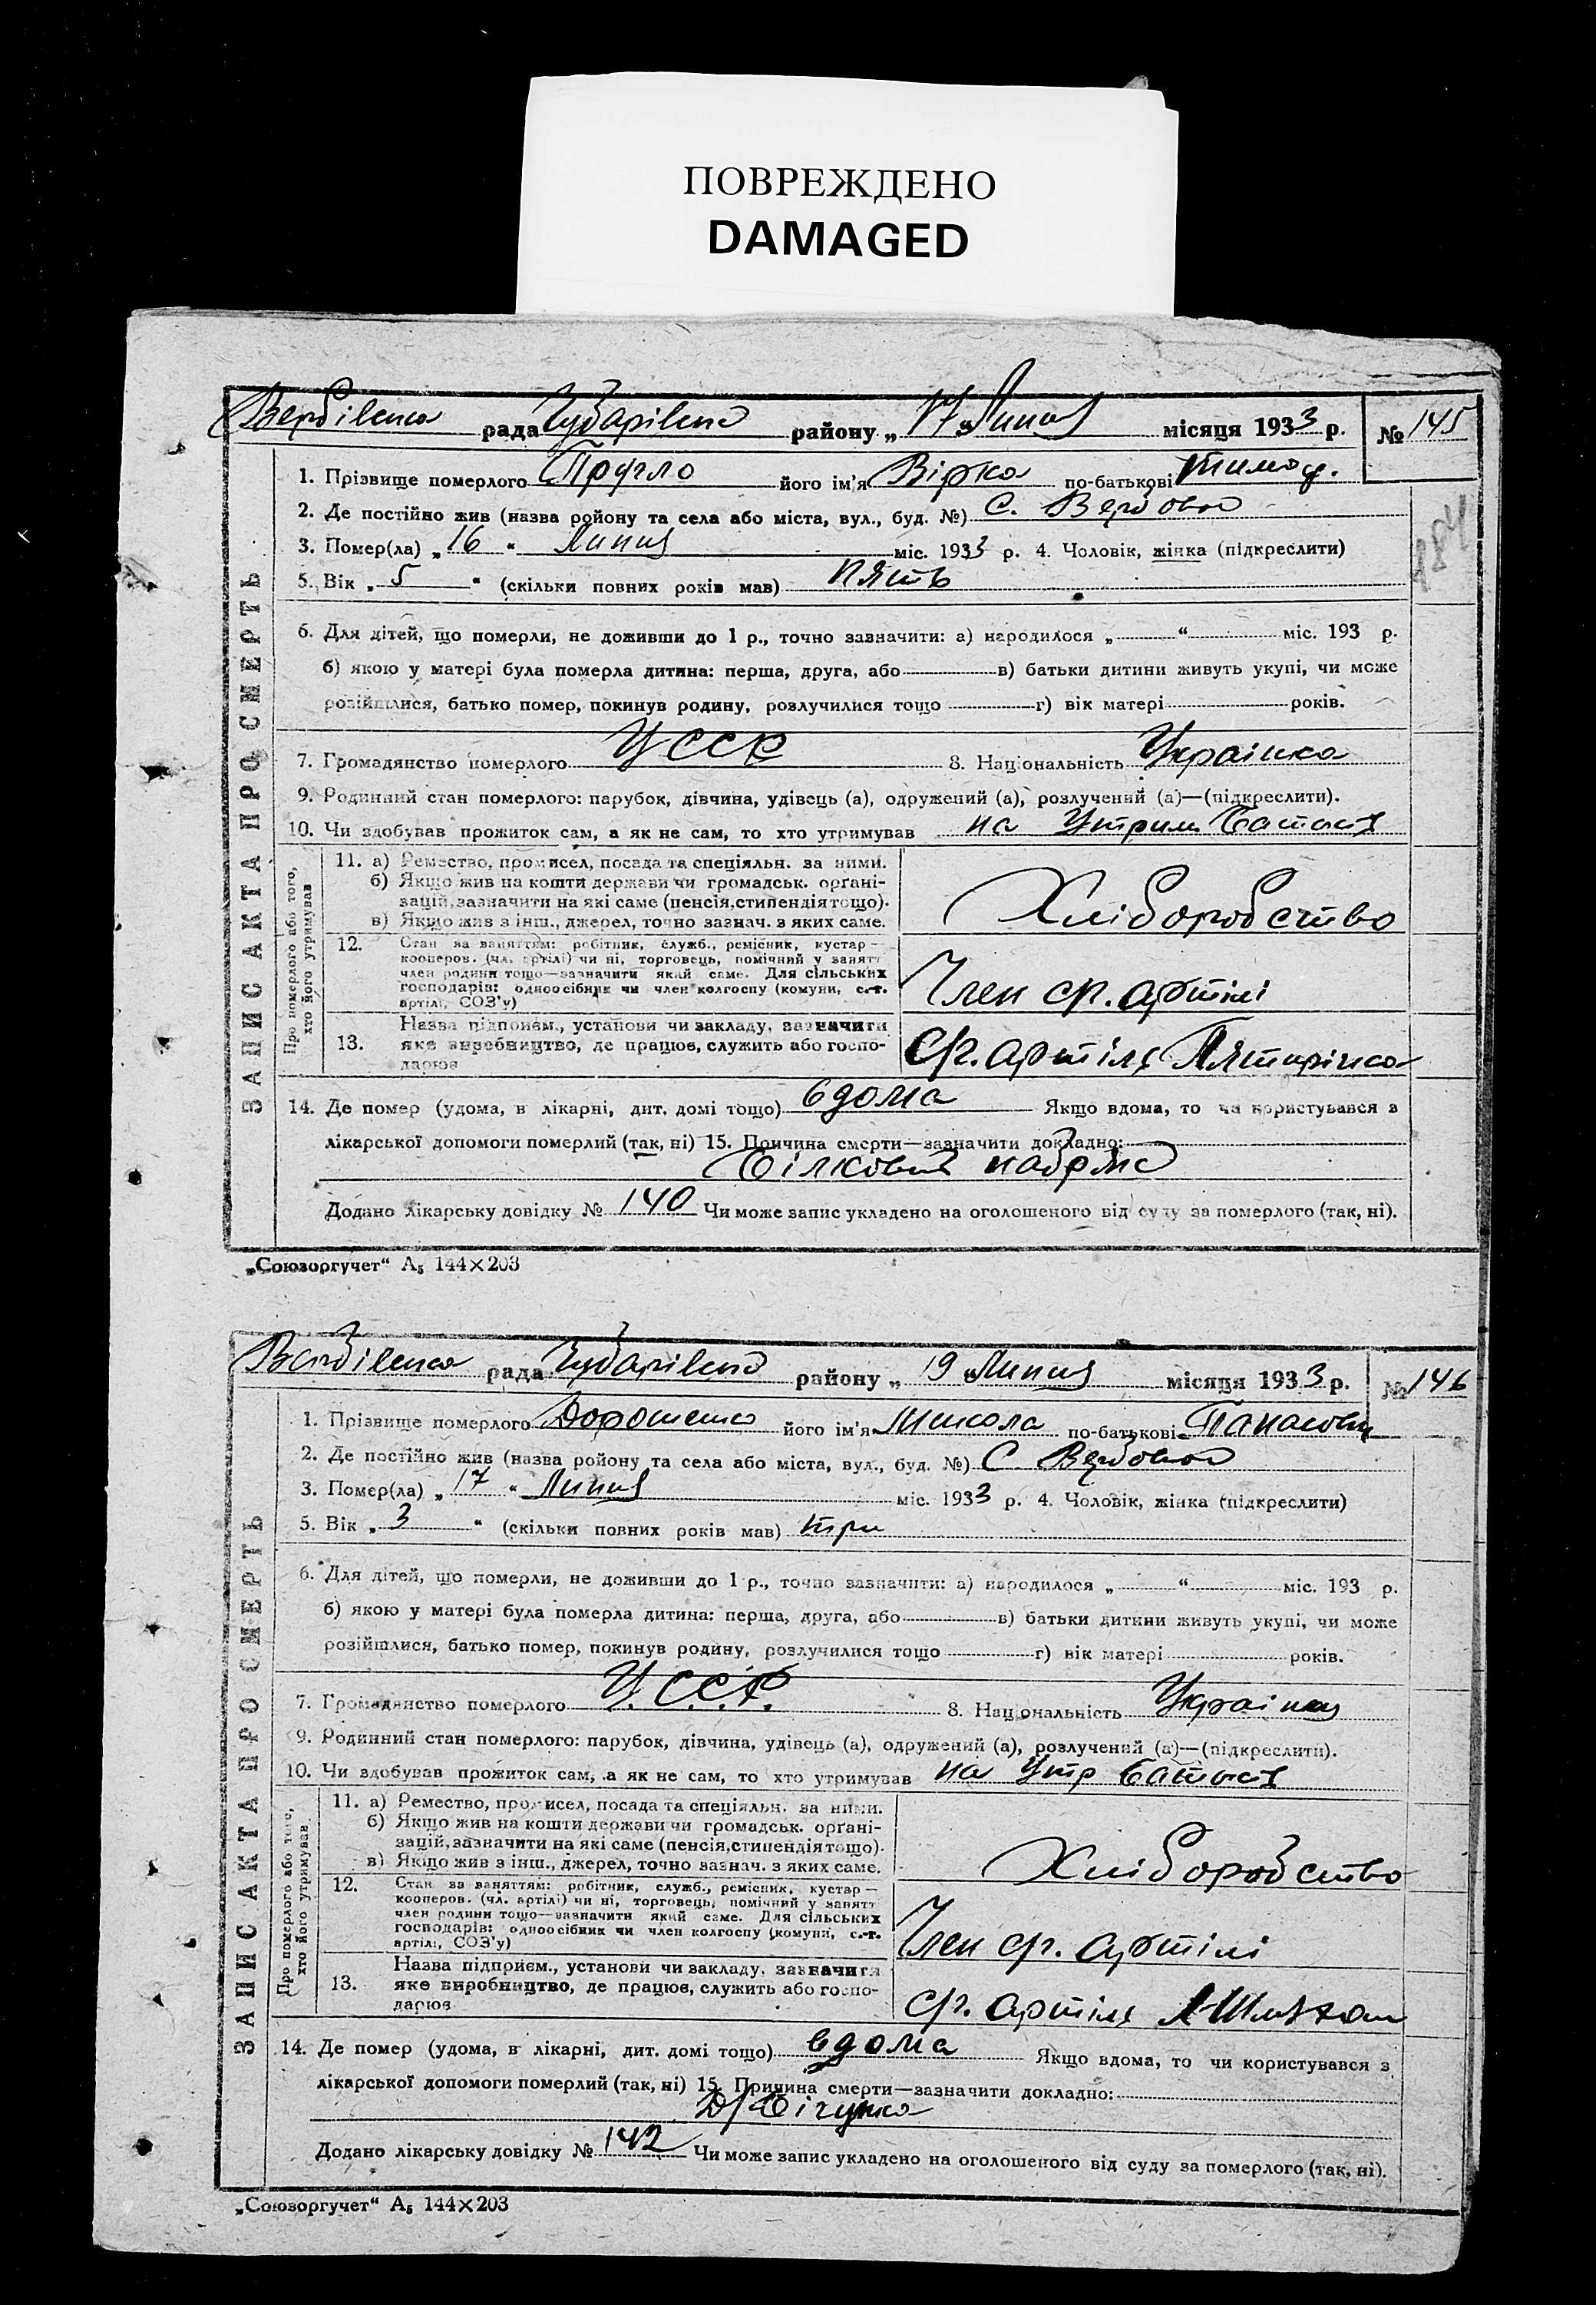 ПОВРЕЖДЕНО
DAMAGED
Вербівська рада Чубарівська району „17“ Липня місяця 1933 р. № 145
1. Прізвище померлого Пругло його ім'я Вірка по-батькові Тимоф.
2. Де постійно жив (назва ройону та села або міста, вул., буд. №) С. Вербова
3. Помер(ла) „16“ Липня міс. 1933 р. 4. Чоловік, жінка (підкреслити)
5. Вік „5“ (скільки повних років мав) пять
6. Для дітей, що померли, не доживши до 1 р., точно зазначити: а) народилося „ “ міс. 193 р.
б) якою у матері була померла дитина: перша, друга, або в) батьки дитини живуть укупі, чи може
розійшлися, батько помер, покинув родину, розлучилися тощо г) вік матері років.
7. Громадянство померлого УССР 8. Національність Українка
9. Родинний стан померлого: парубок, дівчина, удівець (а), одружений (а), розлучений (а)—(підкреслити).
10. Чи здобував прожиток сам, а як не сам, то хто утримував на Утрим. батька
ЗАПИС АКТА ПРО СМЕРТЬ
Про померлого або того, хто його утримував
11. а) Ремество, промисел, посада та спеціяльн. за ними.
б) Якщо жив на кошти держави чи громадськ. орґані-
зацій, зазначити на які саме (пенсія, стипендія тощо).
в) Якщо жив з інш., джерел, точно зазнач. з яких саме.
Хліборобство
12. Стан за заняттям: робітник, служб., ремісник, кустар—
кооперов. (чл. артілі) чи ні, торговець, помічний у занятт
член родини тощо—зазначити який саме. Для сільських
господарів: одноосібник чи член колгоспу (комуни, с.-г.
артілі, СОЗ'у)
Член ср. артілі
13. Назва підприєм., установи чи закладу, зазначити
яке виробництво, де працює, служить або госпо-
дарює
Ср. артіль Пятирічка
14. Де помер (удома, в лікарні, дит. домі тощо) вдома Якщо вдома, то чи користувався з
лікарської допомоги померлий (так, ні) 15. Причина смерти—зазначити докладно:
Білковий набряк
Додано лікарську довідку № 140 Чи може запис укладено на оголошеного від суду за померлого (так, ні).
„Союзоргучет“ А₅ 144×203
Вербівська рада Чубарівська району „19“ Липня місяця 1933 р. № 146
1. Прізвище померлого Дорошенко його ім'я Микола по-батькові Панасови
2. Де постійно жив (назва ройону та села або міста, вул., буд. №) С Вербова
3. Помер(ла) „17“ Липня міс. 1933 р. 4. Чоловік, жінка (підкреслити)
5. Вік „3“ (скільки повних років мав) три
6. Для дітей, що померли, не доживши до 1 р., точно зазначити: а) народилося „ “ міс. 193 р.
б) якою у матері була померла дитина: перша, друга, або в) батьки дитини живуть укупі, чи може
розійшлися, батько помер, покинув родину, розлучилися тощо г) вік матері років.
7. Громадянство померлого У.С.С.Р. 8. Національність
9. Родинний стан померлого: парубок, дівчина, удівець (а), одружений (а), розлучений (а)—(підкреслити).
10. Чи здобував прожиток сам, а як не сам, то хто утримував на Утр батька
ЗАПИС АКТА ПРО СМЕРТЬ
Про померлого або того, хто його утримував
11. а) Ремество, промисел, посада та спеціяльн. за ними.
б) Якщо жив на кошти держави чи громадськ. орґані-
зацій, зазначити на які саме (пенсія, стипендія тощо).
в) Якщо жив з інш., джерел, точно зазнач. з яких саме.
Хліборобство
12. Стан за заняттям: робітник, служб., ремісник, кустар—
кооперов. (чл. артілі) чи ні, торговець, помічний у занятт
член родини тощо—зазначити який саме. Для сільських
господарів: одноосібник чи член колгоспу (комуни, с.-г.
артілі, СОЗ'у)
Член ср. артілі
13. Назва підприєм., установи чи закладу, зазначити
яке виробництво, де працює, служить або госпо-
дарює
ср. артіль
14. Де помер (удома, в лікарні, дит. домі тощо) вдома Якщо вдома, то чи користувався з
лікарської допомоги померлий (так, ні) 15. Причина смерти—зазначити докладно:
Д/Бігунка
Додано лікарську довідку № 142 Чи може запис укладено на оголошеного від суду за померлого (так, ні).
„Союзоргучет“ А₅ 144×203